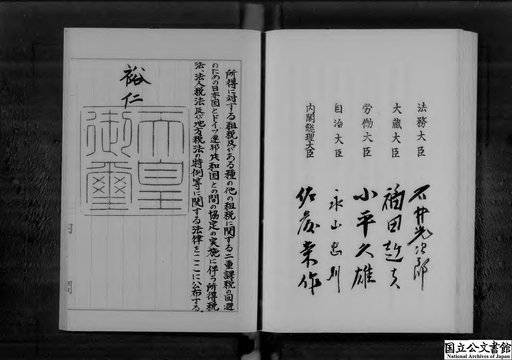 所得に対する租税及びある種の他の租税に関する二重課税の回避
のための日本国とドイツ連邦共和国との間の協定の実施に伴う所得税
法、法人税法及び地方税法の特例等に関する法律をここに公布する。
裕仁
天皇
御璽
法務大臣 石井光次郎
大蔵大臣 福田赳夫
労働大臣 小平久雄
自治大臣 永山忠則
内閣総理大臣 佐藤栄作
国立公文書館
National Archives of Japan